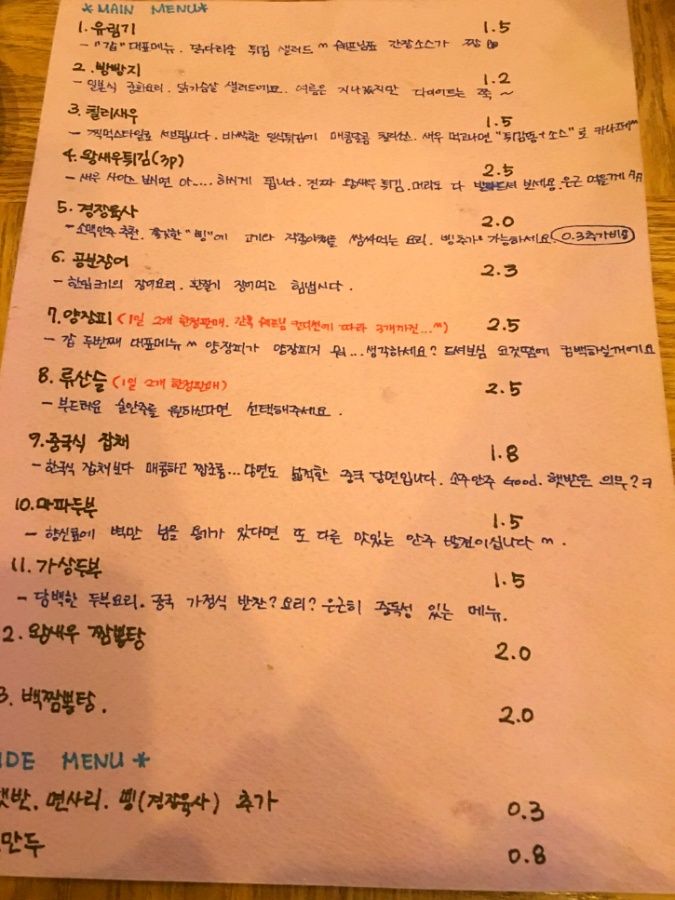 *MAIN MENU*
1. 유림기 1.5
- "갑" 대표메뉴. 닭다리살 튀김 샐러드^^ 쉐프님표 간장소스가 짱
2. 방빵지 1.2
- 일본식 중화요리. 닭가슴살 샐러드에요. 여름은 지나갔지만 다이어트는 쭉~
3. 칠리새우 1.5
- 깩먹스타일로 서브됩니다. 바싹한 일식튀김에 매콤달콤 칠리소스. 새우 먹고나면 "튀김똥+소스"로 카나페^^
4. 왕새우튀김(3p) 2.5
- 새우 사이즈 보시면 아.... 하시게 됩니다. 진짜 왕새우 튀김. 머리도 다 드셔 보세요. 은근
5. 경장육사 2.0
- 소맥안주 추천. 쫄깃한 "삥"에 고기와 각종야채를 쌈싸먹는 요리. 삥추가 가능하세요. 0.3추가비용
6. 공보장어 2.3
- 한입크기의 장어요리. 환절기 장어먹고 힘냅시다.
7. 양장피 (1일 2개 한정판매. 간혹 쉐프님 컨디션에 따라 3개까진...^^) 2.5
- 갑 두번째 대표메뉴^^ 양장피가 양장피지 뭐...생각하세요? 드셔보심 요것땜에 컴백하실꺼에요
8. 류산슬 (1일 2개 한정판매) 2.5
- 부드러운 술안주를 원하신다면 선택해주세요.
9. 중국식 잡채 1.8
- 한국식 잡채보다 매콤하고 짭조롬... 당면도 넓적한 중국 당면입니다. 소주안주 Good. 햇반은 의무?ㅋ
10. 마파두부 1.5
- 향신료에 벽만 넘을 용기가 있다면 또 다른 맛있는 안주 발견이십니다^^.
11. 가상두부 1.5
- 담백한 두부요리. 중국 가정식 반찬? 요리? 은근히 중독성 있는 메뉴.
2. 왕새우 짬뽕탕 2.0
3. 백짬뽕탕. 2.0
IDE MENU*
햇반. 면사리. 삥(경장육사) 추가 0.3
만두 0.8